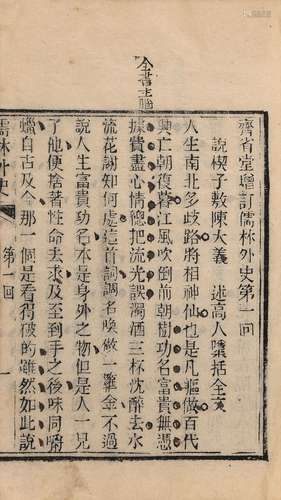 全書主腦
齊省堂增訂儒林外史第一回
說楔子敷陳大義 述高人隱括全文
人生南北多歧路將相神仙也要凡人做百代
興亡朝復暮江風吹倒前朝樹功名富貴無憑
據費盡心情總把流光誤濁酒三杯沈醉去水
流花謝知何處這一首詞調名喚做蝶戀花不過
說人生富貴功名本是身外之物但是人一見
了他便捨著性命去求及至到手之後味同嚼
蠟自古及今那一個是看得破的雖然如此說
儒林外史 第一回 一